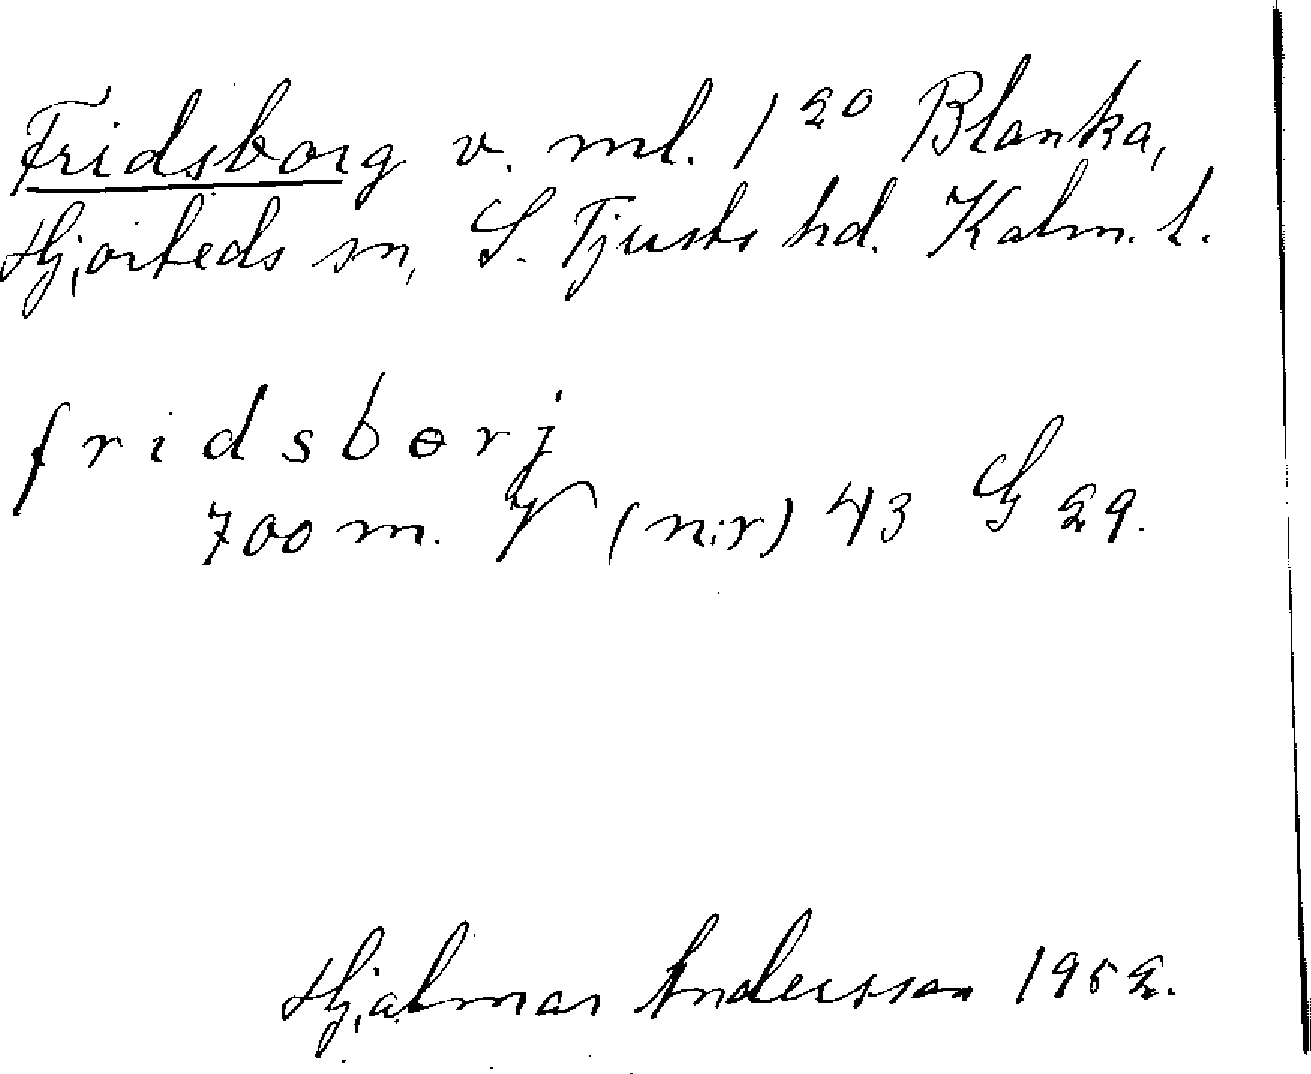 Fridsborg v. ml. 1²⁰ Blanka,
Hjorteds sn, S. Tjusts hd. Kalm. l.
fridsbɵrj
700 m. V (n:r) 43 G 29.
Hjalmar Andersson 1952.